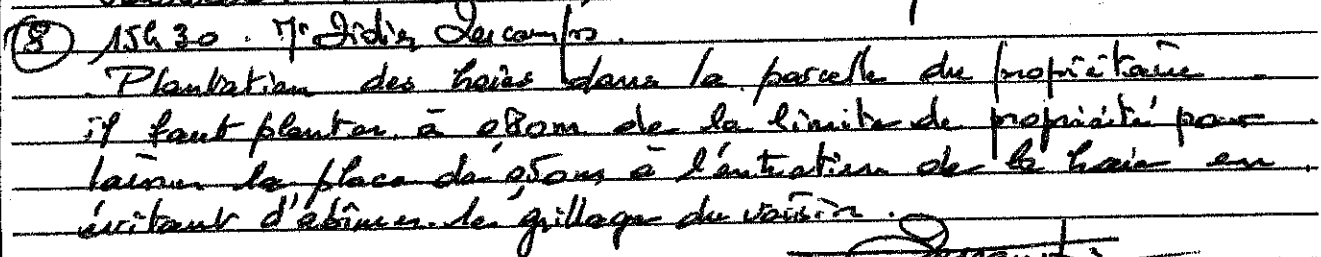 ⑧ 15h30. Mr Didier Descamps.
. Plantation des haies dans la parcelle du propriétaire.
il faut planter à 0,80m de la limite de propriété pour
laisser la place de 0,50m à l'entretien de la haie en
évitant d'abîmer le grillage du voisin.